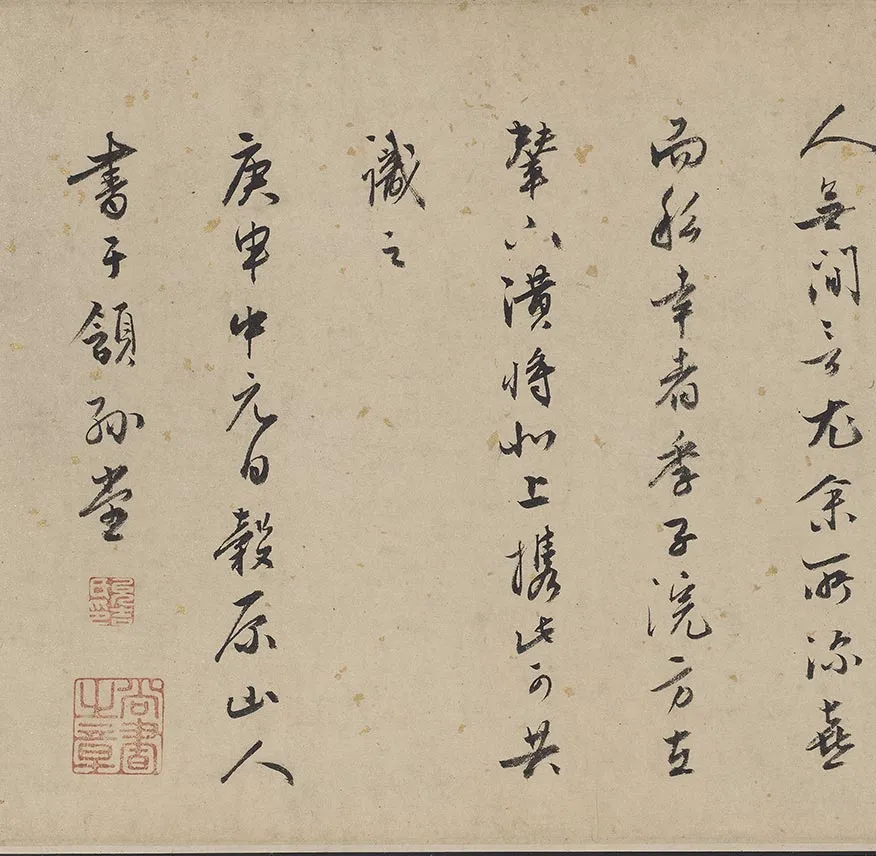 人無間言尤余所深喜
而私幸者季子浣方在
輦下潢將北上攜此可共
識之
庚申中元日穀原山人
書于頷孫堂
尚書之章